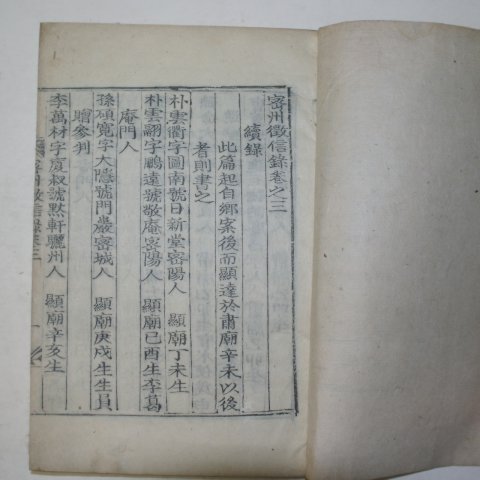 密州徵信錄卷之三
續錄
此篇起自鄕案後而顯達於肅廟辛未以後
者則書之
朴雲衢字圖南號日新堂密陽人 顯廟丁未生
朴雲翮字鵬遠號敬庵密陽人 顯廟己酉生李葛
庵門人
孫碩寬字大隱號門巖密城人 顯廟庚戌生生員
贈參判
李萬材字度叔號默軒驪州人 顯廟辛亥生
密州徵信錄卷三
一